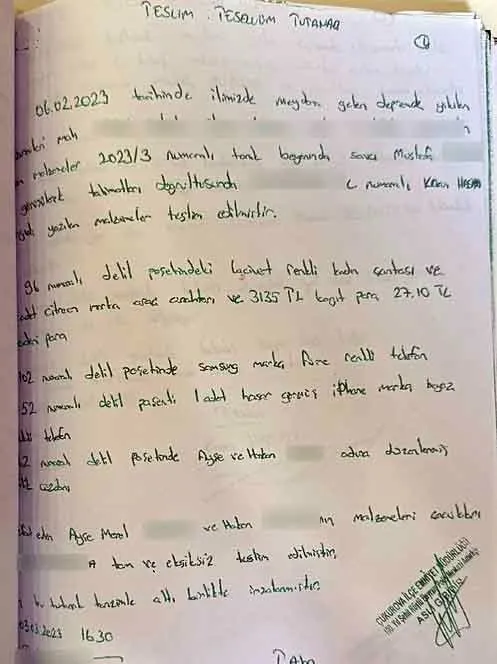 TESLİM TESELLÜM TUTANAĞI
06.02.2023 tarihinde ilimizde meydana gelen depremde yıkılan
mah
malzemeler 2023/3 numaralı tanık beyanında savcı Mustafa
talimatları doğrultusunda numaralı
yazılan malzemeler teslim edilmiştir.
96 numaralı delil poşetindeki lacivert renkli kadın çantası ve
adet citroen marka araç anahtarı ve 3135 TL kağıt para 27.10 TL
para
102 numaralı delil poşetinde samsung marka renkli telefon
52 numaralı delil poşeti 1 adet hasar görmüş iphone marka beyaz
telefon
2 numaralı delil poşetinde Ayşe ve Hakan adına düzenlenmiş
cüzdanı
eden Ayşe Meral ve Hakan ın malzemeleri çocukları
A tam ve eksiksiz teslim edilmiştir.
bu tutanak tanzimle altı birlikte imzalanmıştır.
03.03.2023 16.30
ÇUKUROVA İLÇE EMNİYET MÜDÜRLÜĞÜ